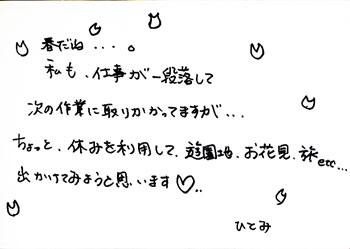 春だね・・・。
私も、仕事が一段落して
次の作業に取りかかってますが・・・
ちょっと、休みを利用して、遊園地、お花見、旅etc...
出かけてみようと思います♡..
ひとみ